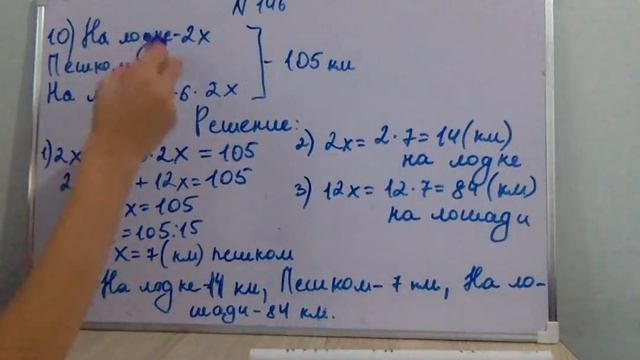 N 146
10) На лодке - 2x
Пешком
На - 6 · 2x
- 105 км
Решение:
1) 2x · 2x = 105
2 + 12x = 105
x = 105
= 105:15
x = 7 (км) пешком
2) 2x = 2 · 7 = 14 (км)
на лодке
3) 12x = 12 · 7 = 84 (км)
на лошади
На лодке - 14 км, Пешком - 7 км, На ло-
шади - 84 км.